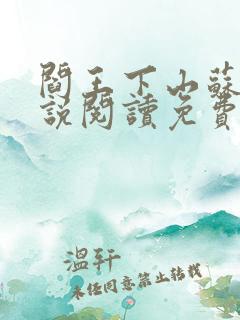 閻王下山蘇
說閱讀免費
溫轩
未経同意禁止转载